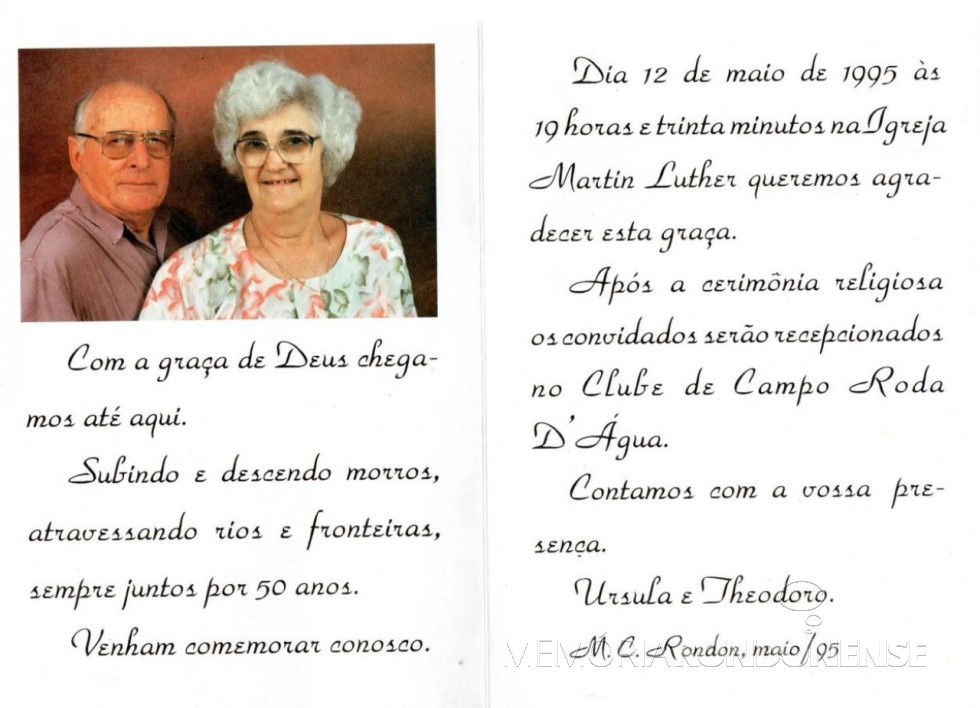 Com a graça de Deus chega-
mos até aqui.
Subindo e descendo morros,
atravessando rios e fronteiras,
sempre juntos por 50 anos.
Venham comemorar conosco.
Dia 12 de maio de 1995 às
19 horas e trinta minutos na Igreja
Martin Luther queremos agra-
decer esta graça.
Após a cerimônia religiosa
os convidados serão recepcionados
no Clube de Campo Roda
D'Água.
Contamos com a vossa pre-
sença.
Ursula e Theodoro.
M. C. Rondon, maio/95
MEMÓRIARONDONENSE